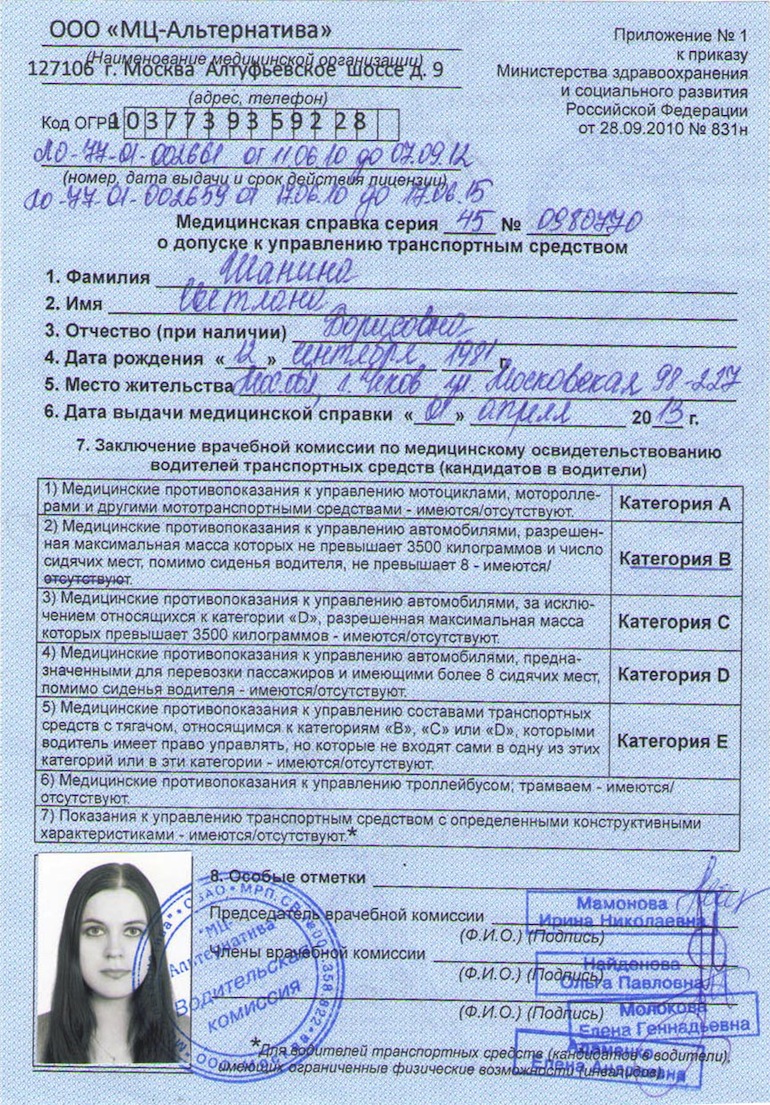 ООО «МЦ-Альтернатива»
(Наименование медицинской организации)
127106 г. Москва Алтуфьевское шоссе д. 9
(адрес, телефон)
Код ОГРН 1037739359228
Приложение № 1
к приказу
Министерства здравоохранения
и социального развития
Российской Федерации
от 28.09.2010 № 831н
ЛО-77-01-002661 от 11.06.10 до 07.09.12
(номер, дата выдачи и срок действия лицензии)
ЛО-77-01-002659 от 17.06.10 до 17.06.15
Медицинская справка серия 45 № 0980770
о допуске к управлению транспортным средством
1. Фамилия Шанина
2. Имя Светлана
3. Отчество (при наличии) Борисовна
4. Дата рождения «12» сентября 1981 г.
5. Место жительства Мос.обл, г. Чехов ул Московская 98-227
6. Дата выдачи медицинской справки «01» апреля 2013 г.
7. Заключение врачебной комиссии по медицинскому освидетельствованию
водителей транспортных средств (кандидатов в водители)
1) Медицинские противопоказания к управлению мотоциклами, моторолле-
рами и другими мототранспортными средствами - имеются/отсутствуют.
Категория А
2) Медицинские противопоказания к управлению автомобилями, разрешен-
ная максимальная масса которых не превышает 3500 килограммов и число
сидячих мест, помимо сиденья водителя, не превышает 8 - имеются/
отсутствуют.
Категория В
3) Медицинские противопоказания к управлению автомобилями, за исклю-
чением относящихся к категории «D», разрешенная максимальная масса
которых превышает 3500 килограммов - имеются/отсутствуют.
Категория С
4) Медицинские противопоказания к управлению автомобилями, предна-
значенными для перевозки пассажиров и имеющими более 8 сидячих мест,
помимо сиденья водителя - имеются/отсутствуют.
Категория D
5) Медицинские противопоказания к управлению составами транспортных
средств с тягачом, относящимся к категориям «В», «С» или «D», которыми
водитель имеет право управлять, но которые не входят сами в одну из этих
категорий или в эти категории - имеются/отсутствуют.
Категория Е
6) Медицинские противопоказания к управлению троллейбусом; трамваем - имеются/
отсутствуют.
7) Показания к управлению транспортным средством с определенными конструктивными
характеристиками - имеются/отсутствуют.*
8. Особые отметки
Председатель врачебной комиссии
Мамонова
Ирина Николаевна
(Ф.И.О.) (Подпись)
Члены врачебной комиссии
Найденова
Ольга Павловна
(Ф.И.О.) (Подпись)
Молокова
Елена Геннадьевна
(Ф.И.О.) (Подпись)
Елена Андреевна
"МЦ-
Альтернатива"
Водительская
комиссия
*Для водителей транспортных средств (кандидатов в водители),
имеющих ограниченные физические возможности (инвалидов).